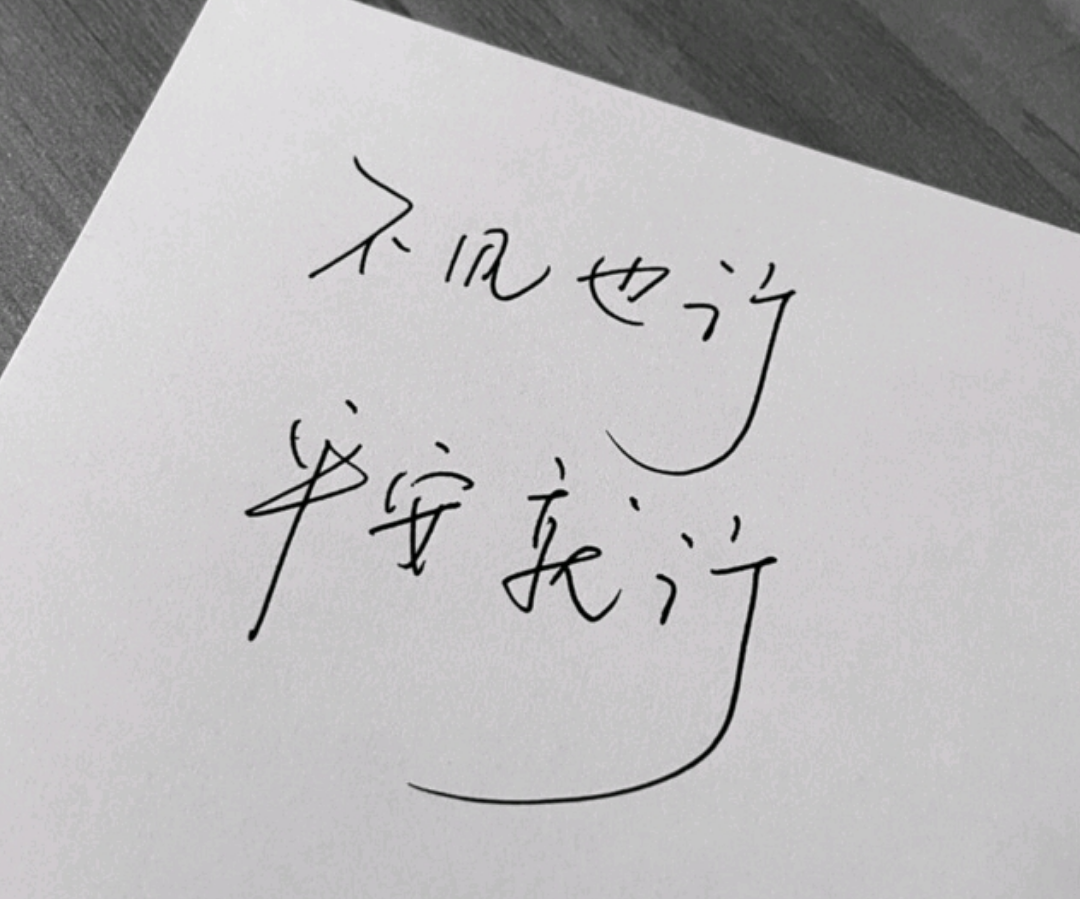 不见也行
平安就行